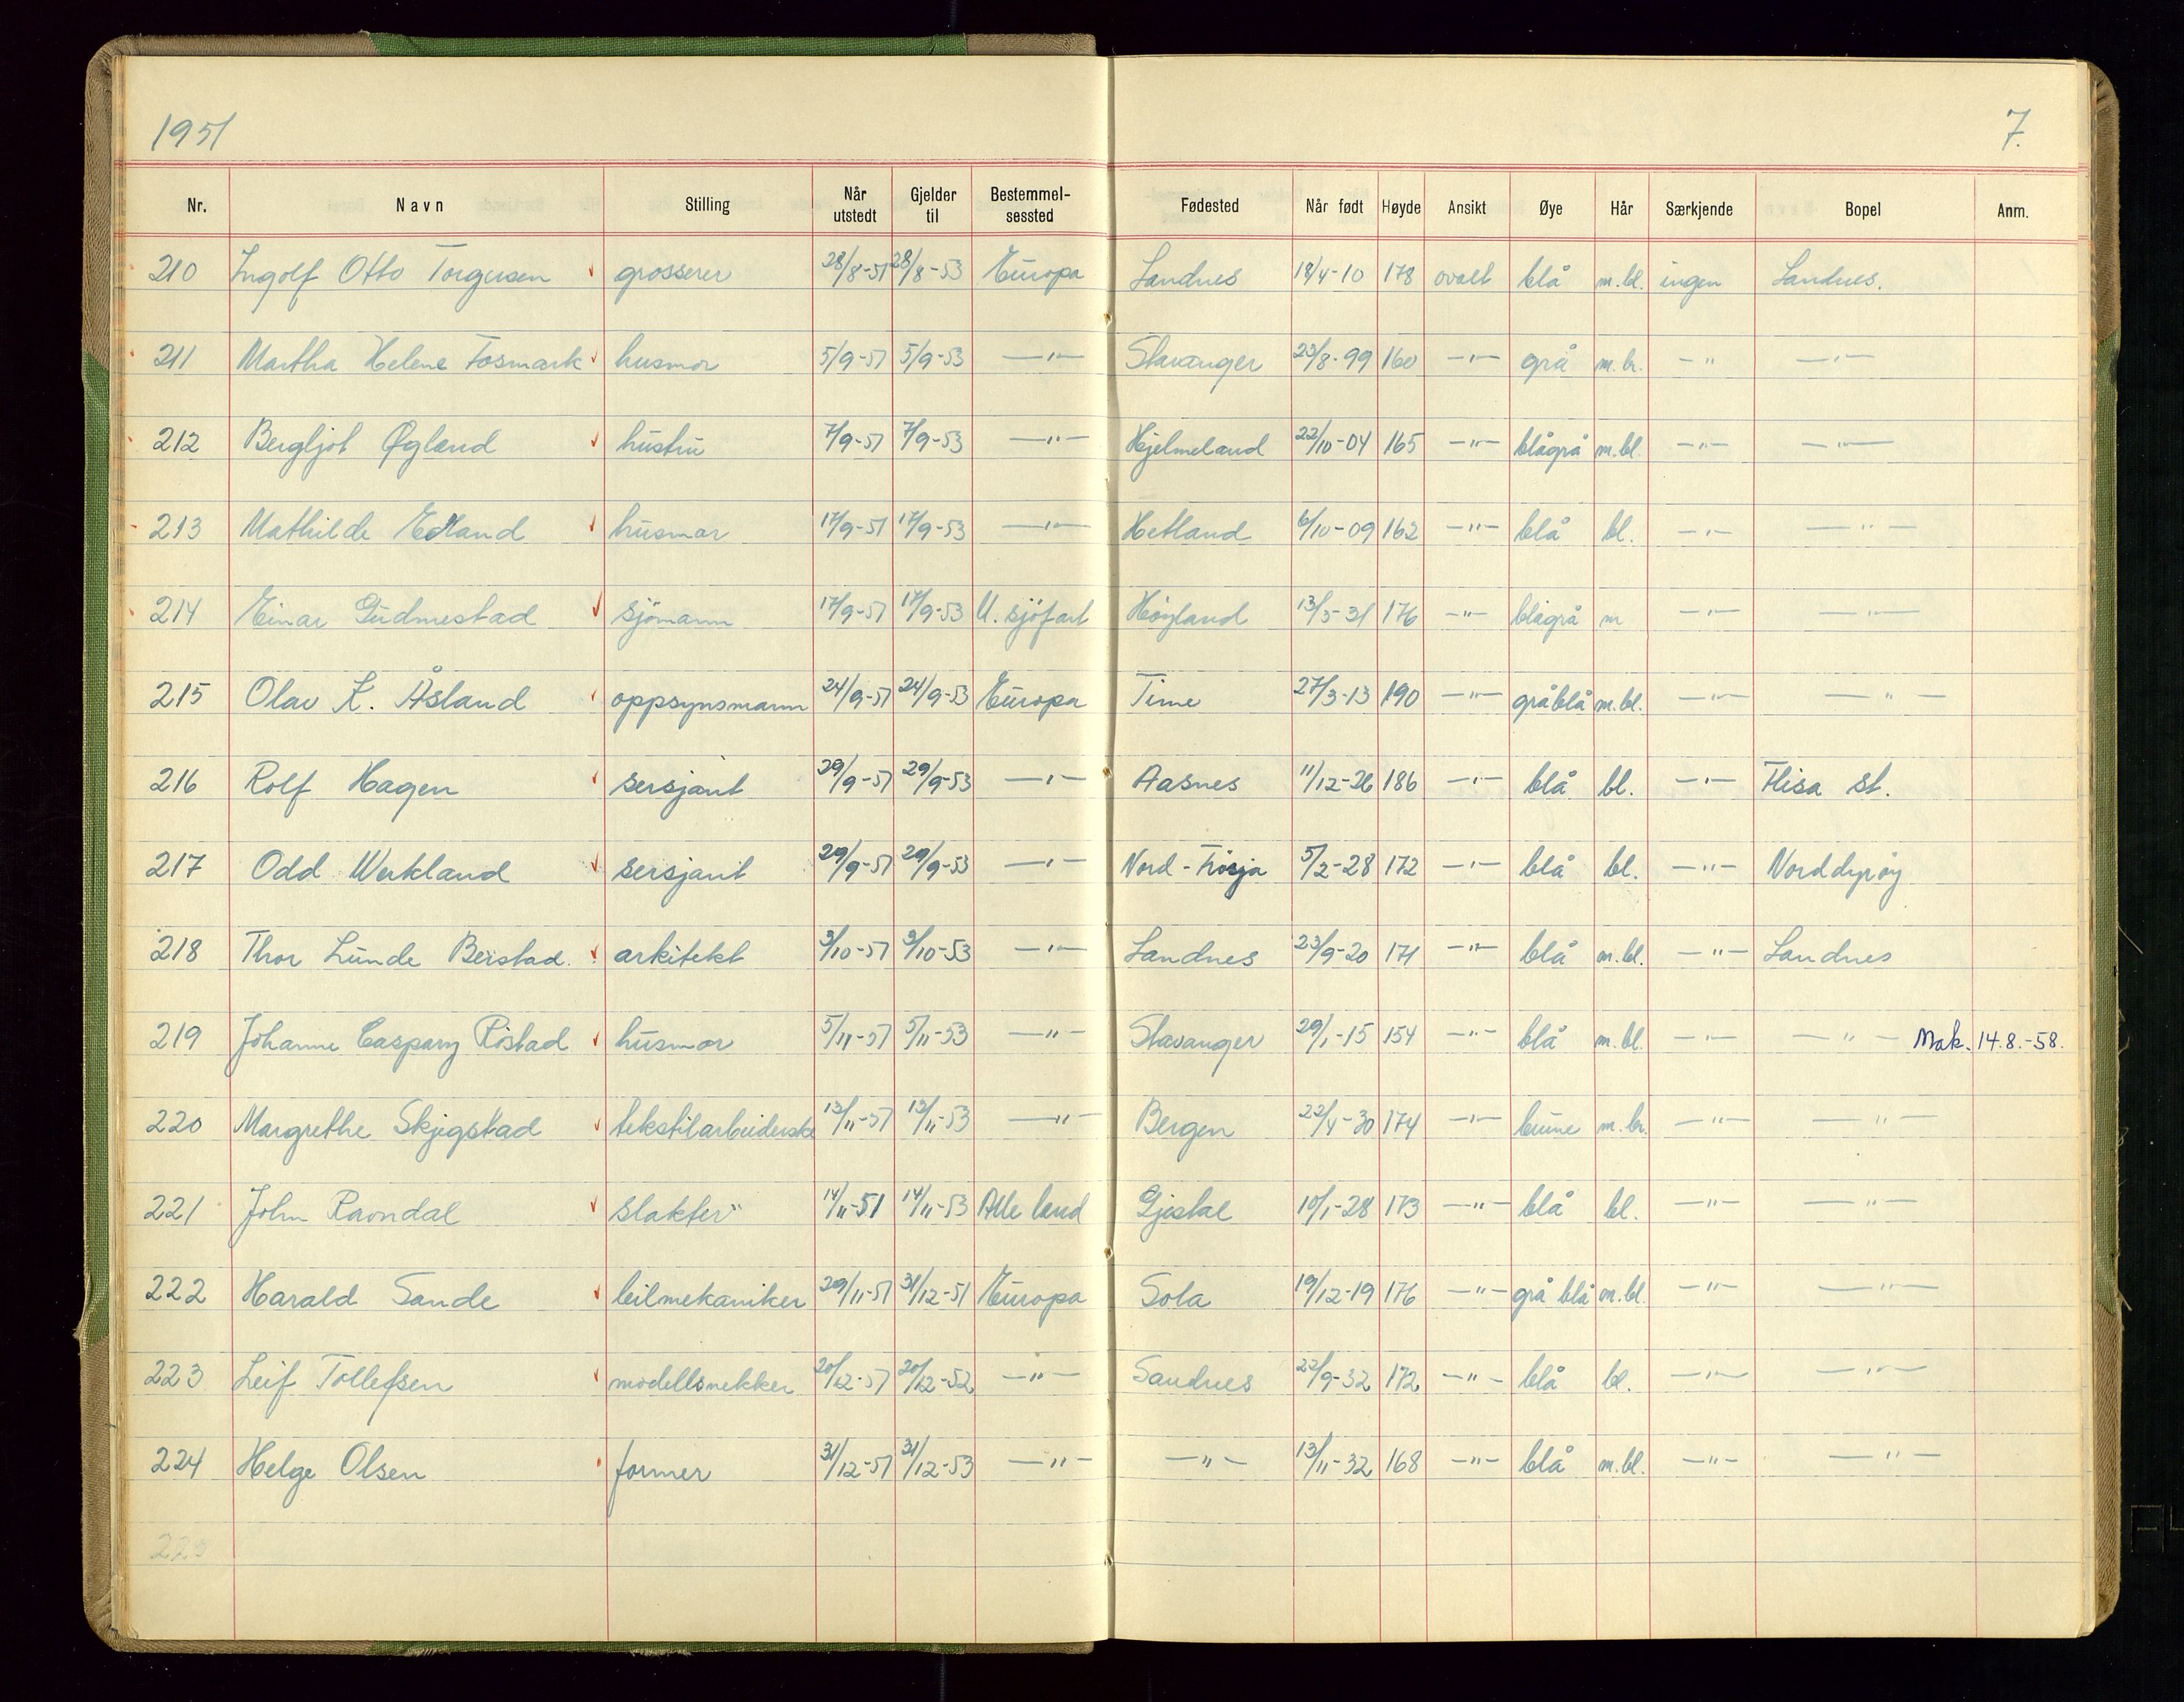 1951
7.
Nr. Navn Stilling Når utstedt Gjelder til Bestemmel-sessted Fødested Når født Høyde Ansikt Øye Hår Særkjende Bopel Anm.
210 Ingolf Otto Torgersen grosserer 28/8-51 28/8-53 Europa Sandnes 18/4-10 178 ovalt blå m.bl. ingen Sandnes.
211 Martha Helene Fosmark husmor 5/9-51 5/9-53 —"— Stavanger 23/8-99 160 —"— grå m.br. —" —"—
212 Bergljot Øgland hustru 7/9-51 7/9-53 —"— Hjelmeland 22/10-04 165 —"— blågrå m.bl. —"— —"—
213 Mathilde Edland husmor 17/9-51 17/9-53 —"— Hetland 6/10-09 162 —"— blå bl. —"— —"—
214 Einar Gudmestad sjömann 17/9-51 17/9-53 U. sjöfart Höyland 13/5-31 176 —"— blågrå m —"— —"—
215 Olav K. Åsland oppsynsmann 24/9-51 24/9-53 Europa Time 27/3-13 190 —"— gråblå m.bl. —"— —"—
216 Rolf Hagen sersjant 29/9-51 29/9-53 —"— Aasnes 11/12-26 186 —"— blå bl. —"— Flisa st.
217 Odd Werkland sersjant 29/9-51 29/9-53 —"— Nord-Fröya 5/2-28 172 —"— blå bl. —"— Norddyröy
218 Thor Lunde Beistad arkitekt 3/10-51 3/10-53 —"— Sandnes 23/9-20 171 —"— blå m.bl. —"— Sandnes
219 Johanne Caspary Röstad husmor 5/11-51 5/11-53 —"— Stavanger 29/1-15 154 —"— blå m.bl. —"— —"— Mak. 14.8.-58.
220 Margrethe Skjegstad tekstilarbeiderske 13/11-51 13/11-53 —"— Bergen 22/4-30 174 —"— brune m.br. —"— —"—
221 John Ravndal slakter 14/11-51 14/11-53 Alle land Gjestal 10/1-28 173 —"— blå bl. —"— —"—
222 Harald Sande bilmekaniker 29/11-51 31/12-51 Europa Sola 19/12-19 176 —"— grå blå m.bl. —"— —"—
223 Leif Tollefsen modellsnekker 20/12-51 20/12-52 —"— Sandnes 22/9-32 172 —"— blå bl. —"— —"—
224 Helge Olsen former 31/12-51 31/12-53 —"— —"— 13/11-32 168 —"— blå m.bl. —"— —"—
225